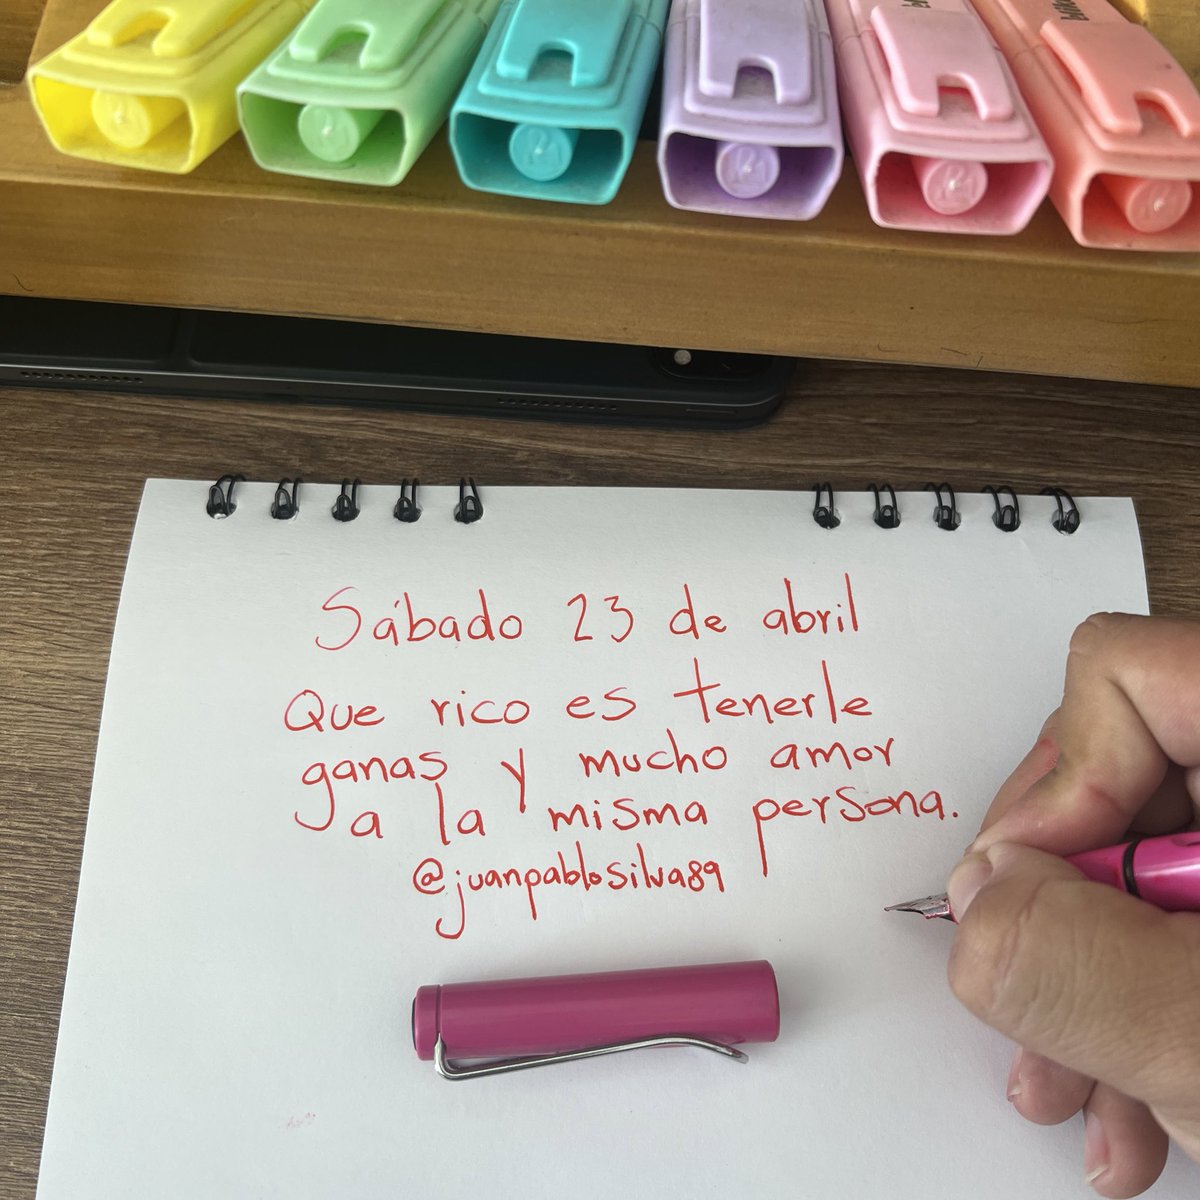 Sábado 23 de abril
Que rico es tenerle
ganas y mucho amor
a la misma persona.
@juanpablosilva89